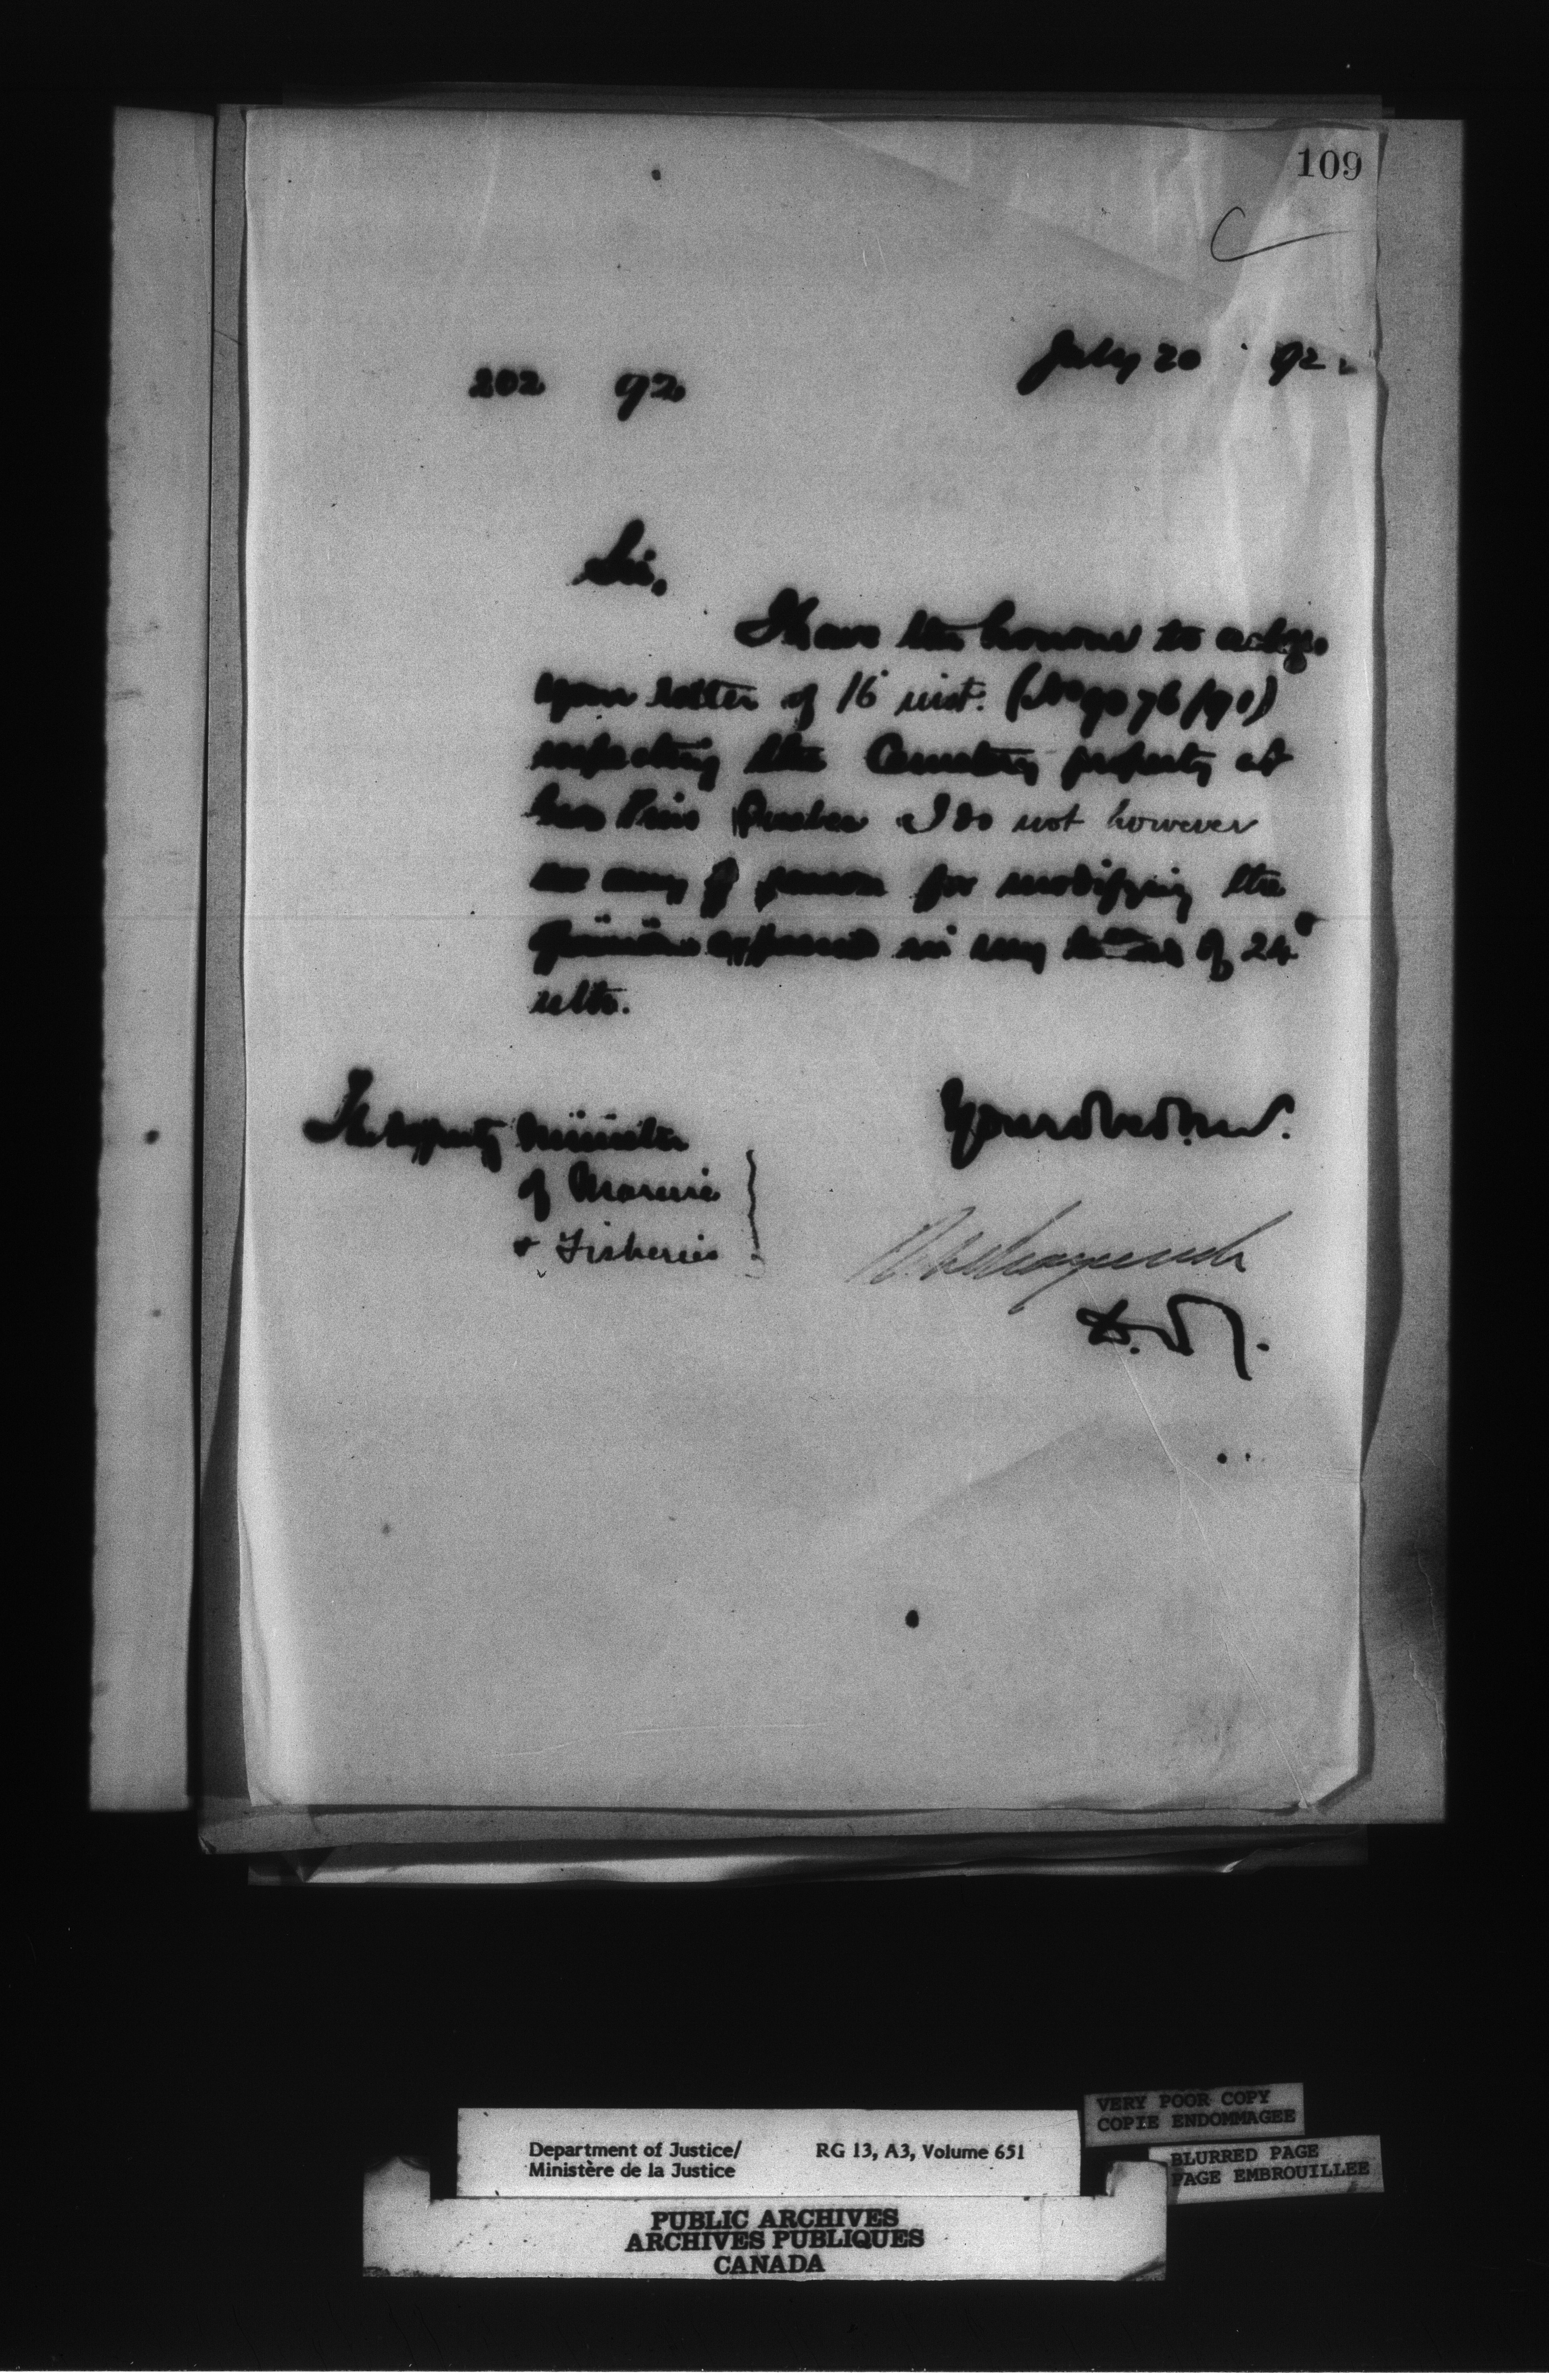 109
202 92
July 20 92.
Sir,
I have the honour to ackge.
your letter of 16 inst. (No 9076/90)
respecting the Cemetery property at
Quebec I do not however
see any reason for modifying the
opinion expressed in my of 24th
ulto.
The Deputy Minister
of Marine
& Fisheries
Your obed. serv.
D. M. J.
VERY POOR COPY
COPIE ENDOMMAGEE
BLURRED PAGE
PAGE EMBROUILLEE
Department of Justice/ RG 13, A3, Volume 651
Ministère de la Justice
PUBLIC ARCHIVES
ARCHIVES PUBLIQUES
CANADA